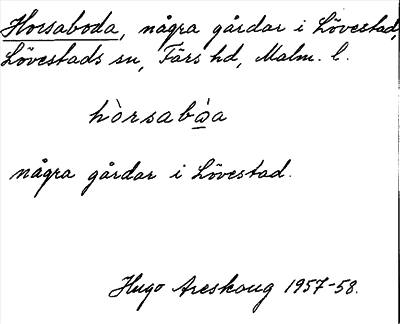 Horsaboda, några gårdar i Lövestad,
Lövestads sn, Färs hd, Malm. l.
hòrsabǻa
några gårdar i Lövestad.
Hugo Areskoug 1957-58.